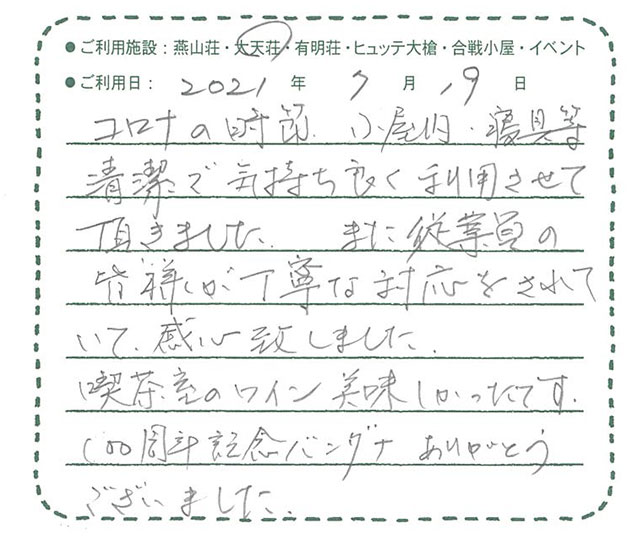 ●ご利用施設：燕山荘・大天荘・有明荘・ヒュッテ大槍・合戦小屋・イベント
●ご利用日：2021年7月19日
コロナの時節、小屋内・寝具等
清潔で気持ち良く利用させて
頂きました。また従業員の
皆様が丁寧な対応をされて
いて、感心致しました。
喫茶室のワイン美味しかったです。
100周年記念バンダナありがとう
ございました。